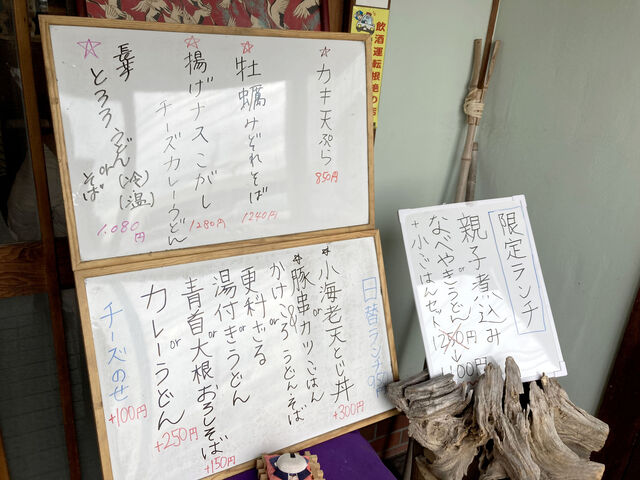 ☆カキ天ぷら
850円
☆牡蠣みぞれそば
1240円
☆揚げナスこがし
チーズカレーうどん
1280円
☆長芋
とろろうどん(冷)(温)
or
そば
1,080円
日替ランチ
☆小海老天とじ丼
+300円
or
☆豚串カツ、ごはん
かけころ うどん・そば
or
更科ざる
湯付きうどん
or
青首大根おろしそば
+150円
or
カレーうどん
+250円
チーズのせ
+100円
限定ランチ
親子煮込み
or
なべやきうどん
+小ごはんセット
1250円
飲酒運転根絶の店